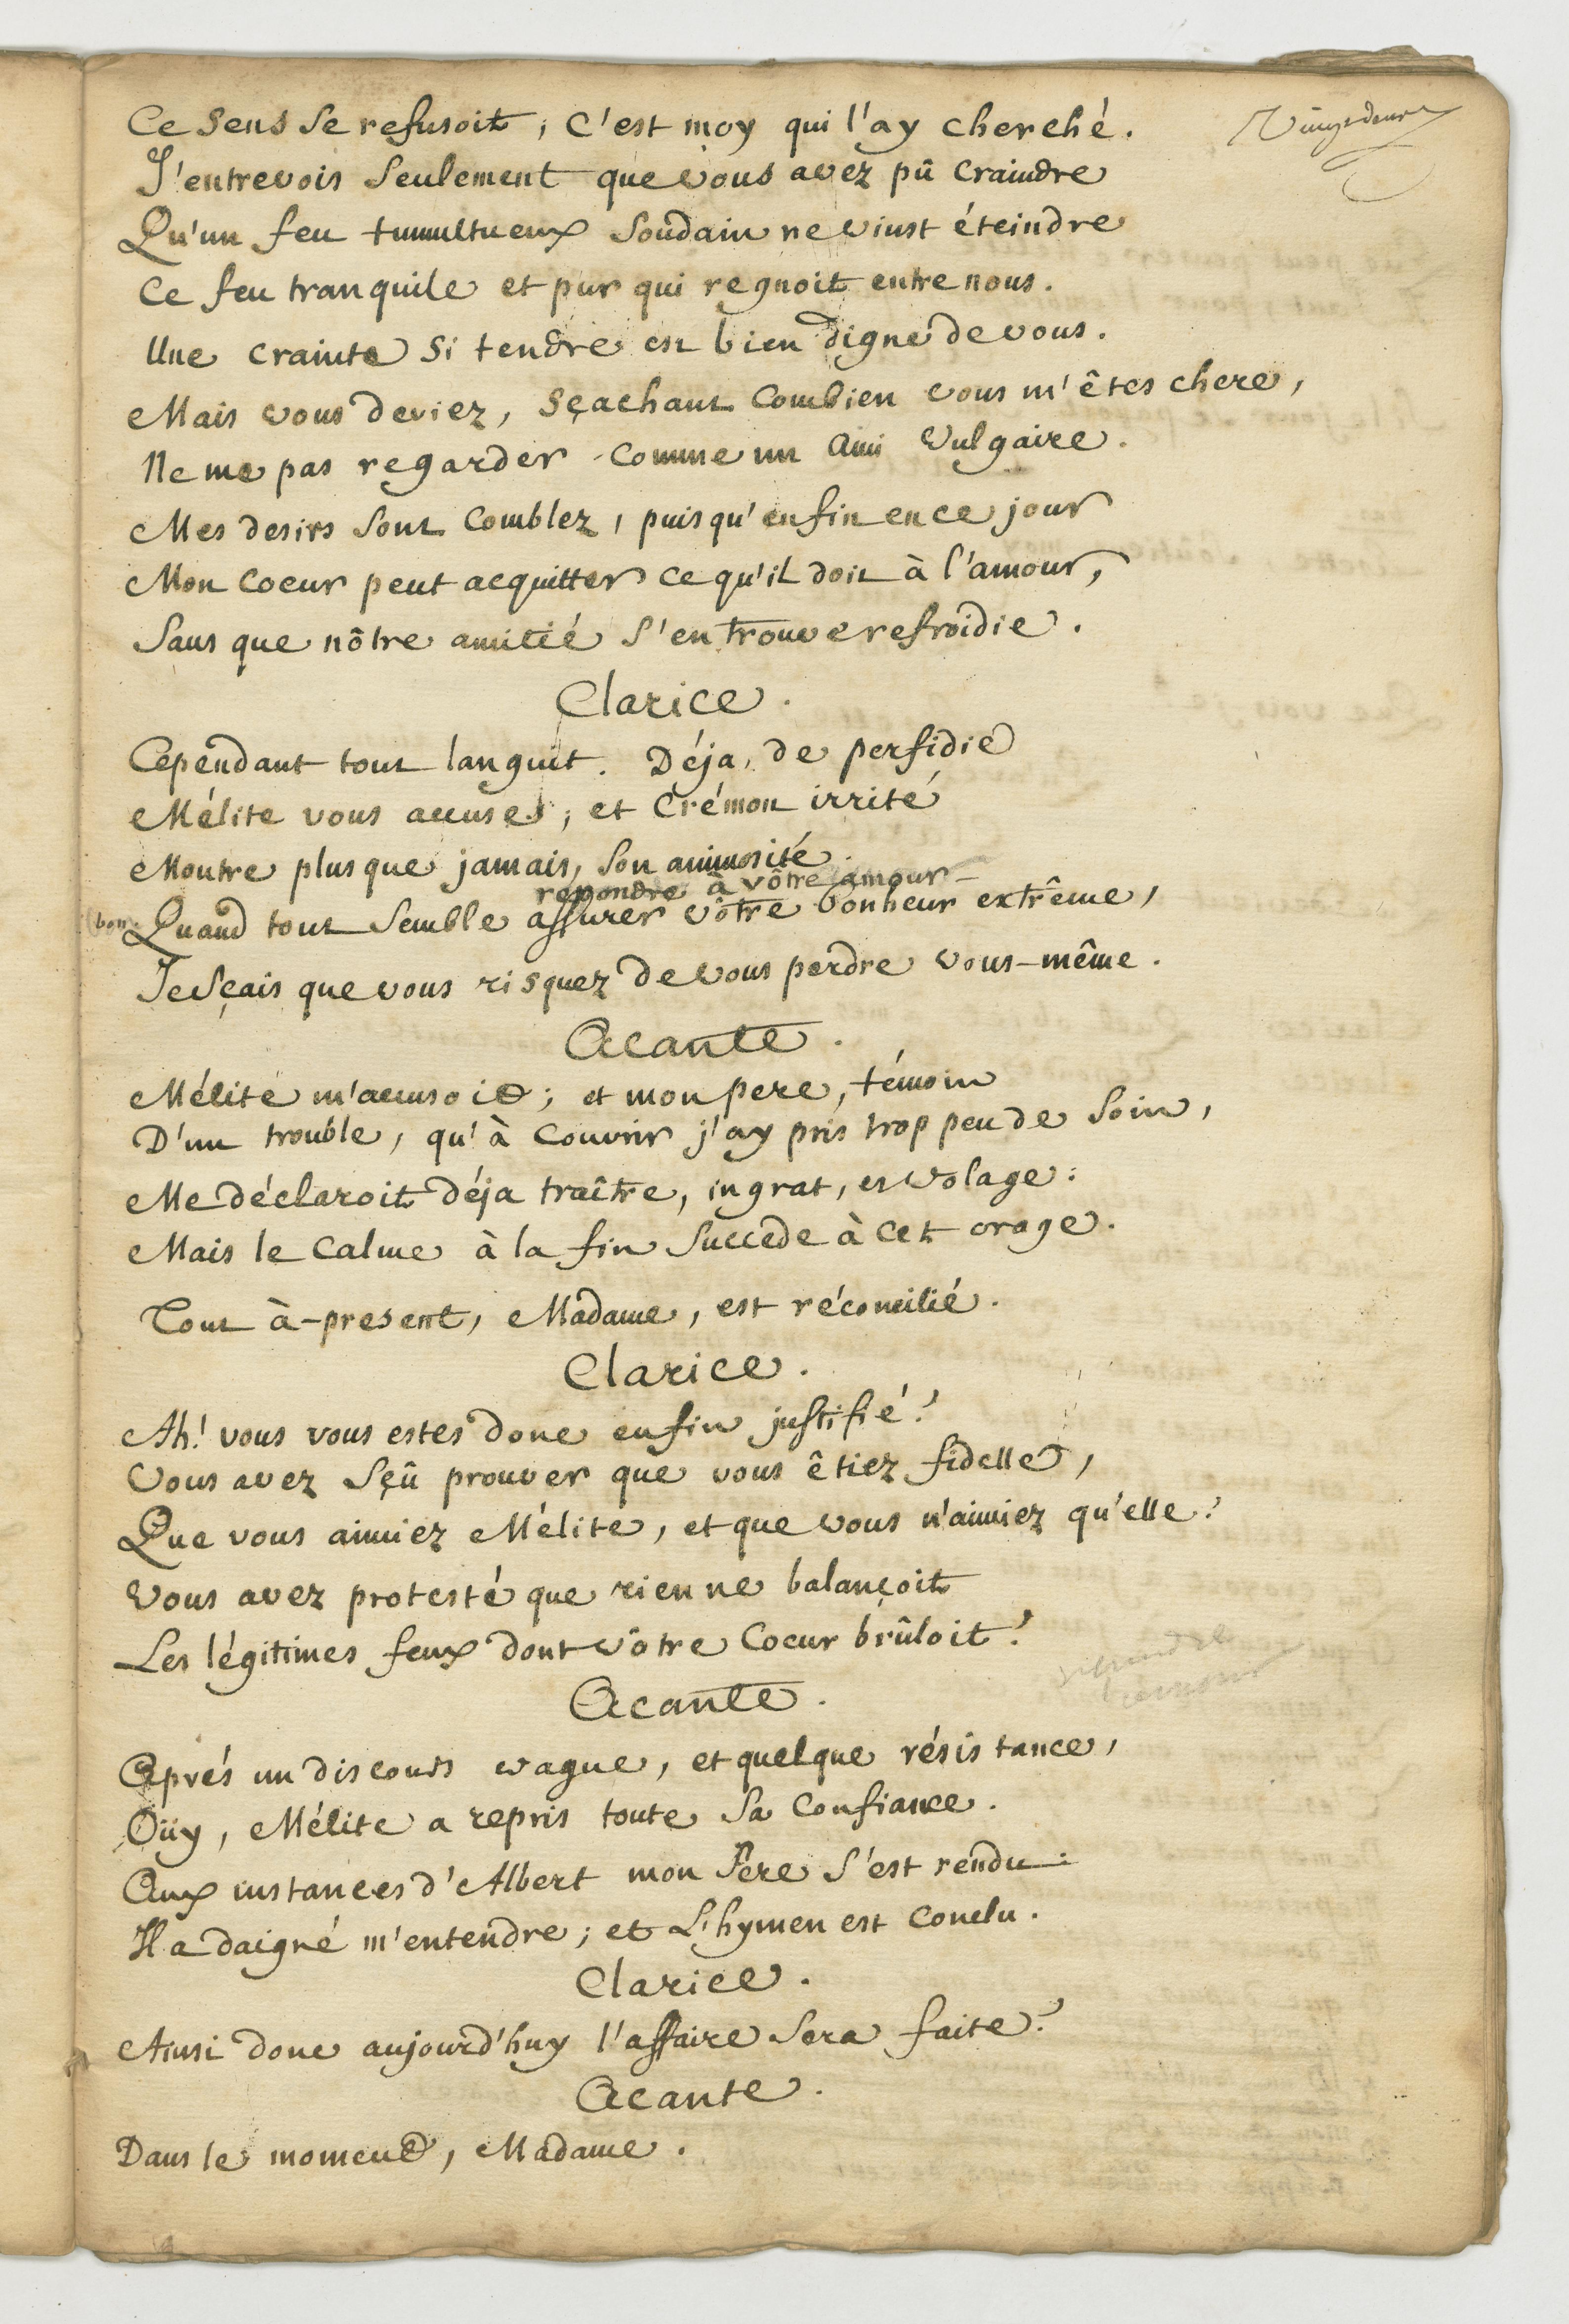 Vingtdeux
Ce sens se refusoit ; c'est moy qui l'ay cherché.
J'entrevois seulement que vous avez pû craindre
Qu'un feu tumultueux soudain ne vinst éteindre
Ce feu tranquile et pur qui regnoit entre nous.
Une crainte si tendre est bien digne de vous.
Mais vous deviez, sçachant combien vous m'êtes chere,
Ne me pas regarder comme un ami vulgaire.
Mes desirs sont comblez, puisqu'enfin en ce jour
Mon coeur peut acquitter ce qu'il doit à l'amour,
Sans que nôtre amitié s'en trouve refroidie.
Clarice.
Cependant tout languit. Déja, de perfidie
Mélite vous accuse ; et Crémon irrité
Montre plus que jamais, son animosité.
repondre à vôtre amour
(bon. Quand tout semble assurer vôtre bonheur extrême,
Je sçais que vous risquez de vous perdre vous-même.
Acante.
Mélite m'accusoit ; et mon pere, témoin
D'un trouble, qu'à couvrir j'ay pris trop peu de soin,
Me déclaroit déja traître, ingrat, et volage :
Mais le calme à la fin succede à cet orage.
Tout à-present, Madame, est réconcilié.
Clarice.
Ah ! vous vous estes donc enfin justifié ?
Vous avez sçû prouver que vous êtiez fidelle,
Que vous aimiez Mélite, et que vous n'aimiez qu'elle ?
Vous avez protesté que rien ne balançoit
Les légitimes feux dont vôtre coeur brûloit ?
Acante.
Aprés un discours vague, et quelque résistance,
Oüy, Mélite a repris toute sa confiance.
Aux instances d'Albert mon Pere s'est rendu :
Il a daigné m'entendre ; et L'hymen est conclu.
Clarice.
Ainsi donc aujourd'huy l'affaire sera faite ?
Acante.
Dans le moment, Madame.